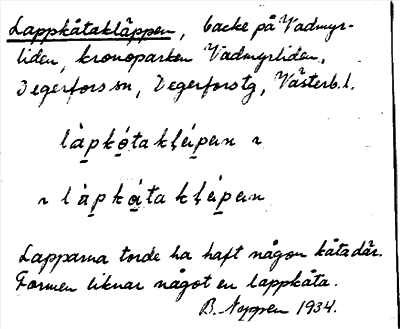 Lappkåtakläppen, backe på Vadmyr-
liden, kronoparken Vadmyrliden,
Degerfors sn, Degerforstg, Västerb.l.
làpkǫ́takl̥éipein ~
~ làpką́takl̥éipein
Lapparna torde ha haft någon kåta där.
Formen liknar något en lappkåta.
B. 1934.